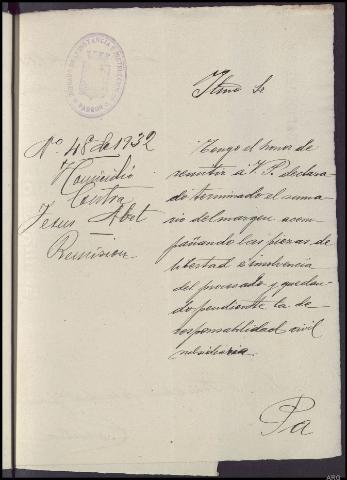 JUZGADO DE 1ª INSTANCIA E INSTRUCCIÓN
Nº 48 de 1932
Homicidio
Contra
Jesus Abot
Remision
Ilmo Sr
Tengo el honor de
remitir á V. S. declara
do terminado el suma
rio del margen acom
pañando las piezas de
libertad é insolvencia
del procesado y quedan
do pendiente la de
responsabilidad civil
subsidiaria.
Pa
ARG